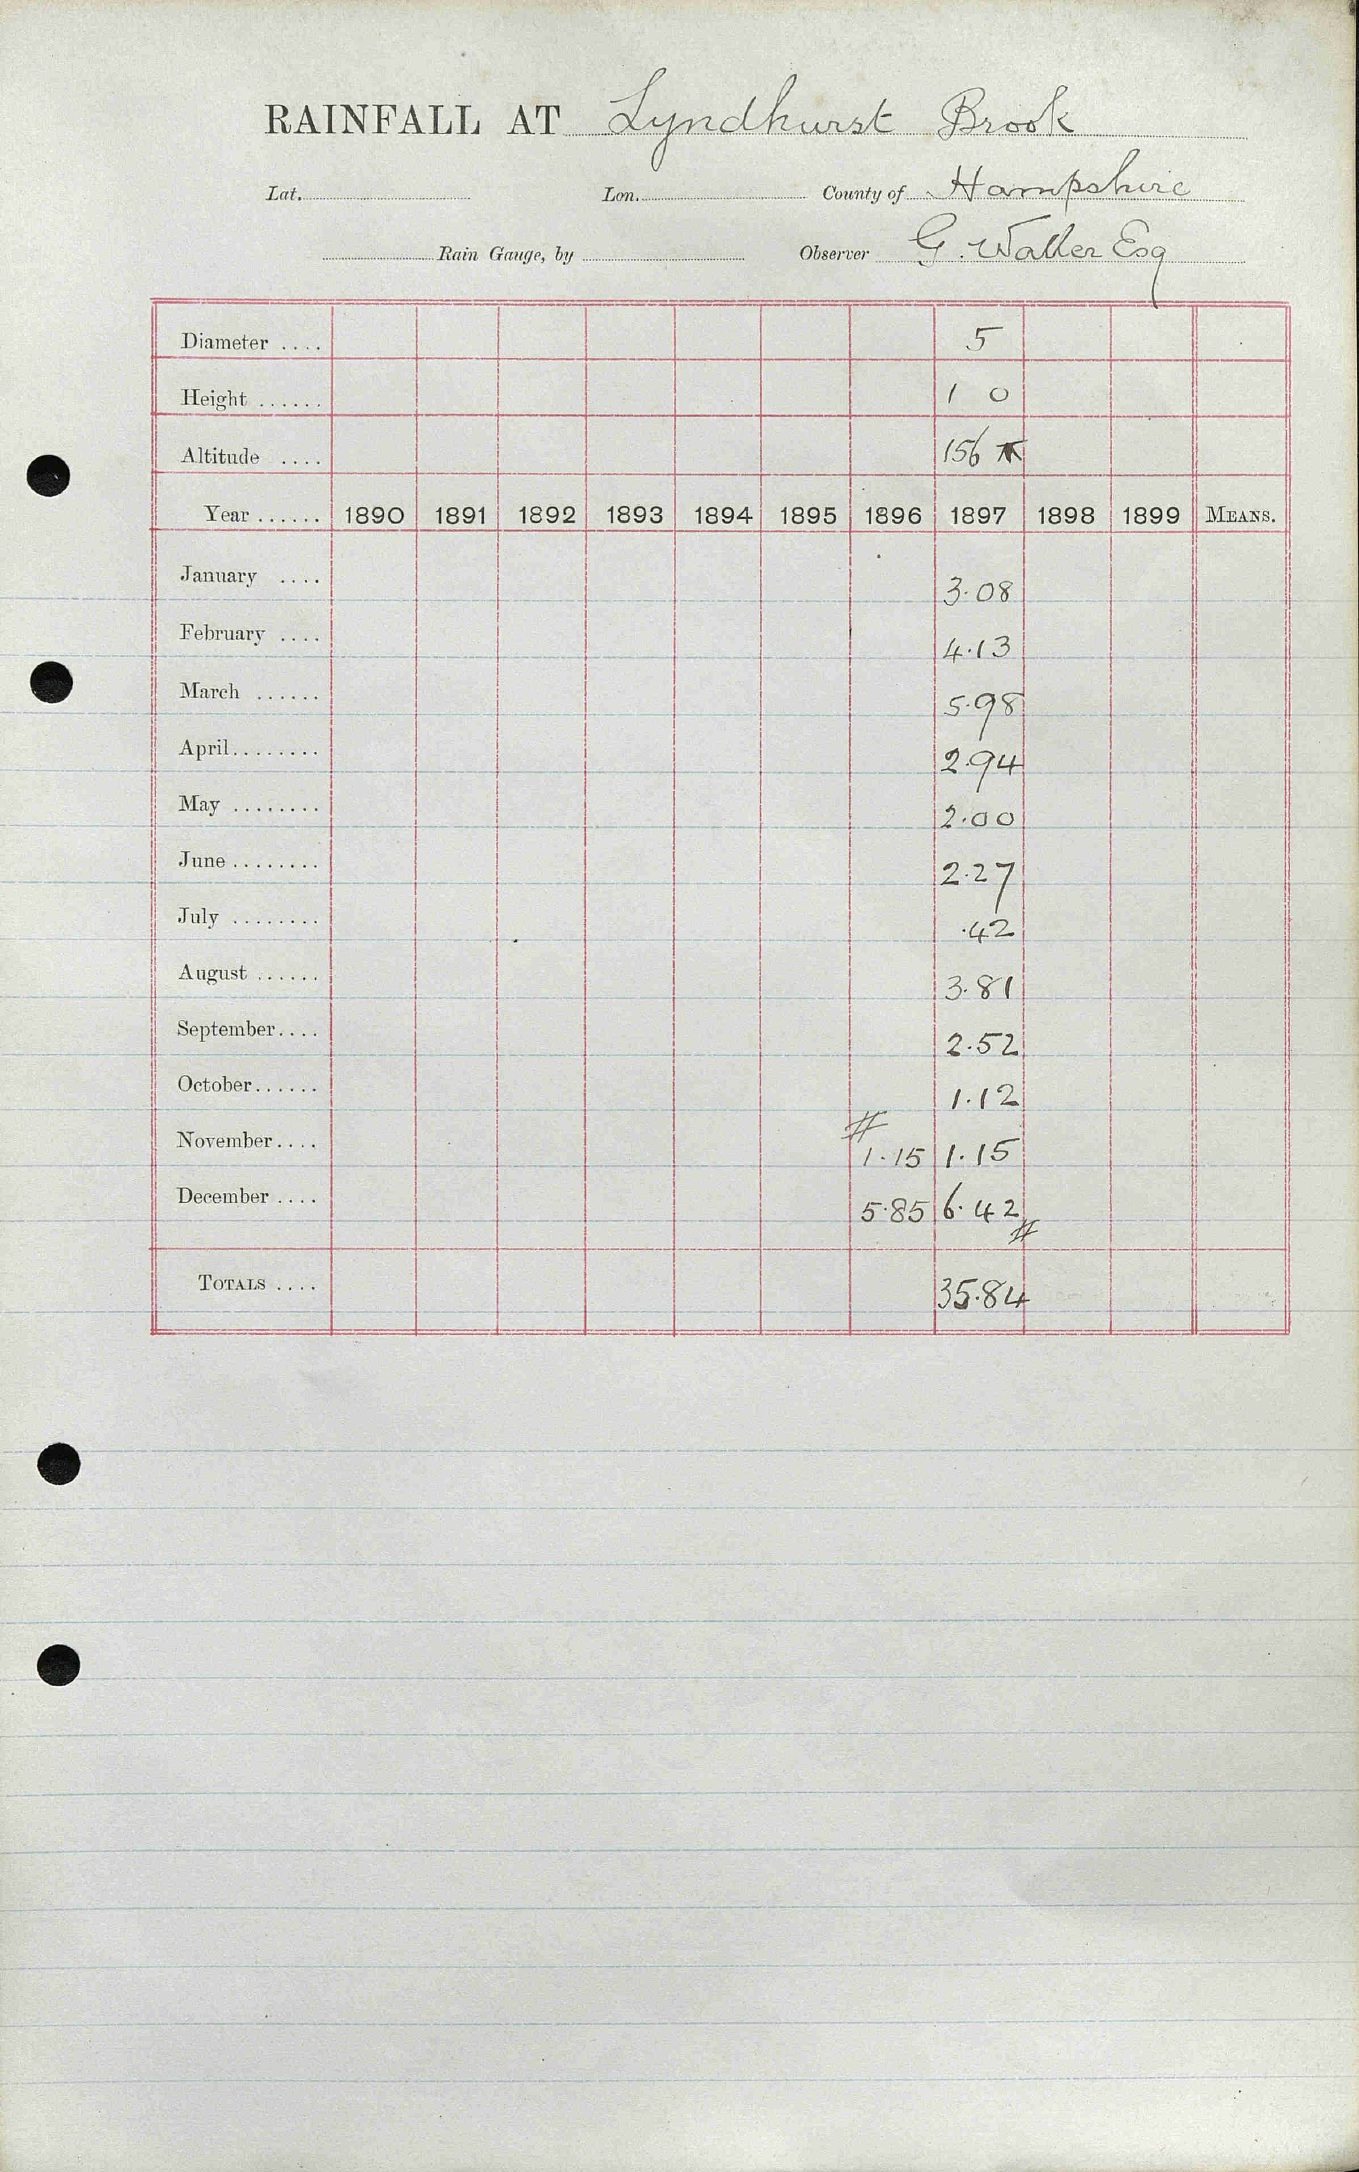 RAINFALL AT Lyndhurst Brook
Lat. Lon. County of Hampshire
Rain Gauge, by Observer G. Waller Esq
Diameter .... 5
Height ...... 1 0
Altitude .... 156
Year ...... 1890 1891 1892 1893 1894 1895 1896 1897 1898 1899 MEANS.
January .... 3.08
February .... 4.13
March ...... 5.98
April........ 2.94
May ........ 2.00
June........ 2.27
July ........ .42
August ...... 3.81
September.... 2.52
October...... 1.12
#
November.... 1.15 1.15
December .... 5.85 6.42
#
TOTALS .... 35.84